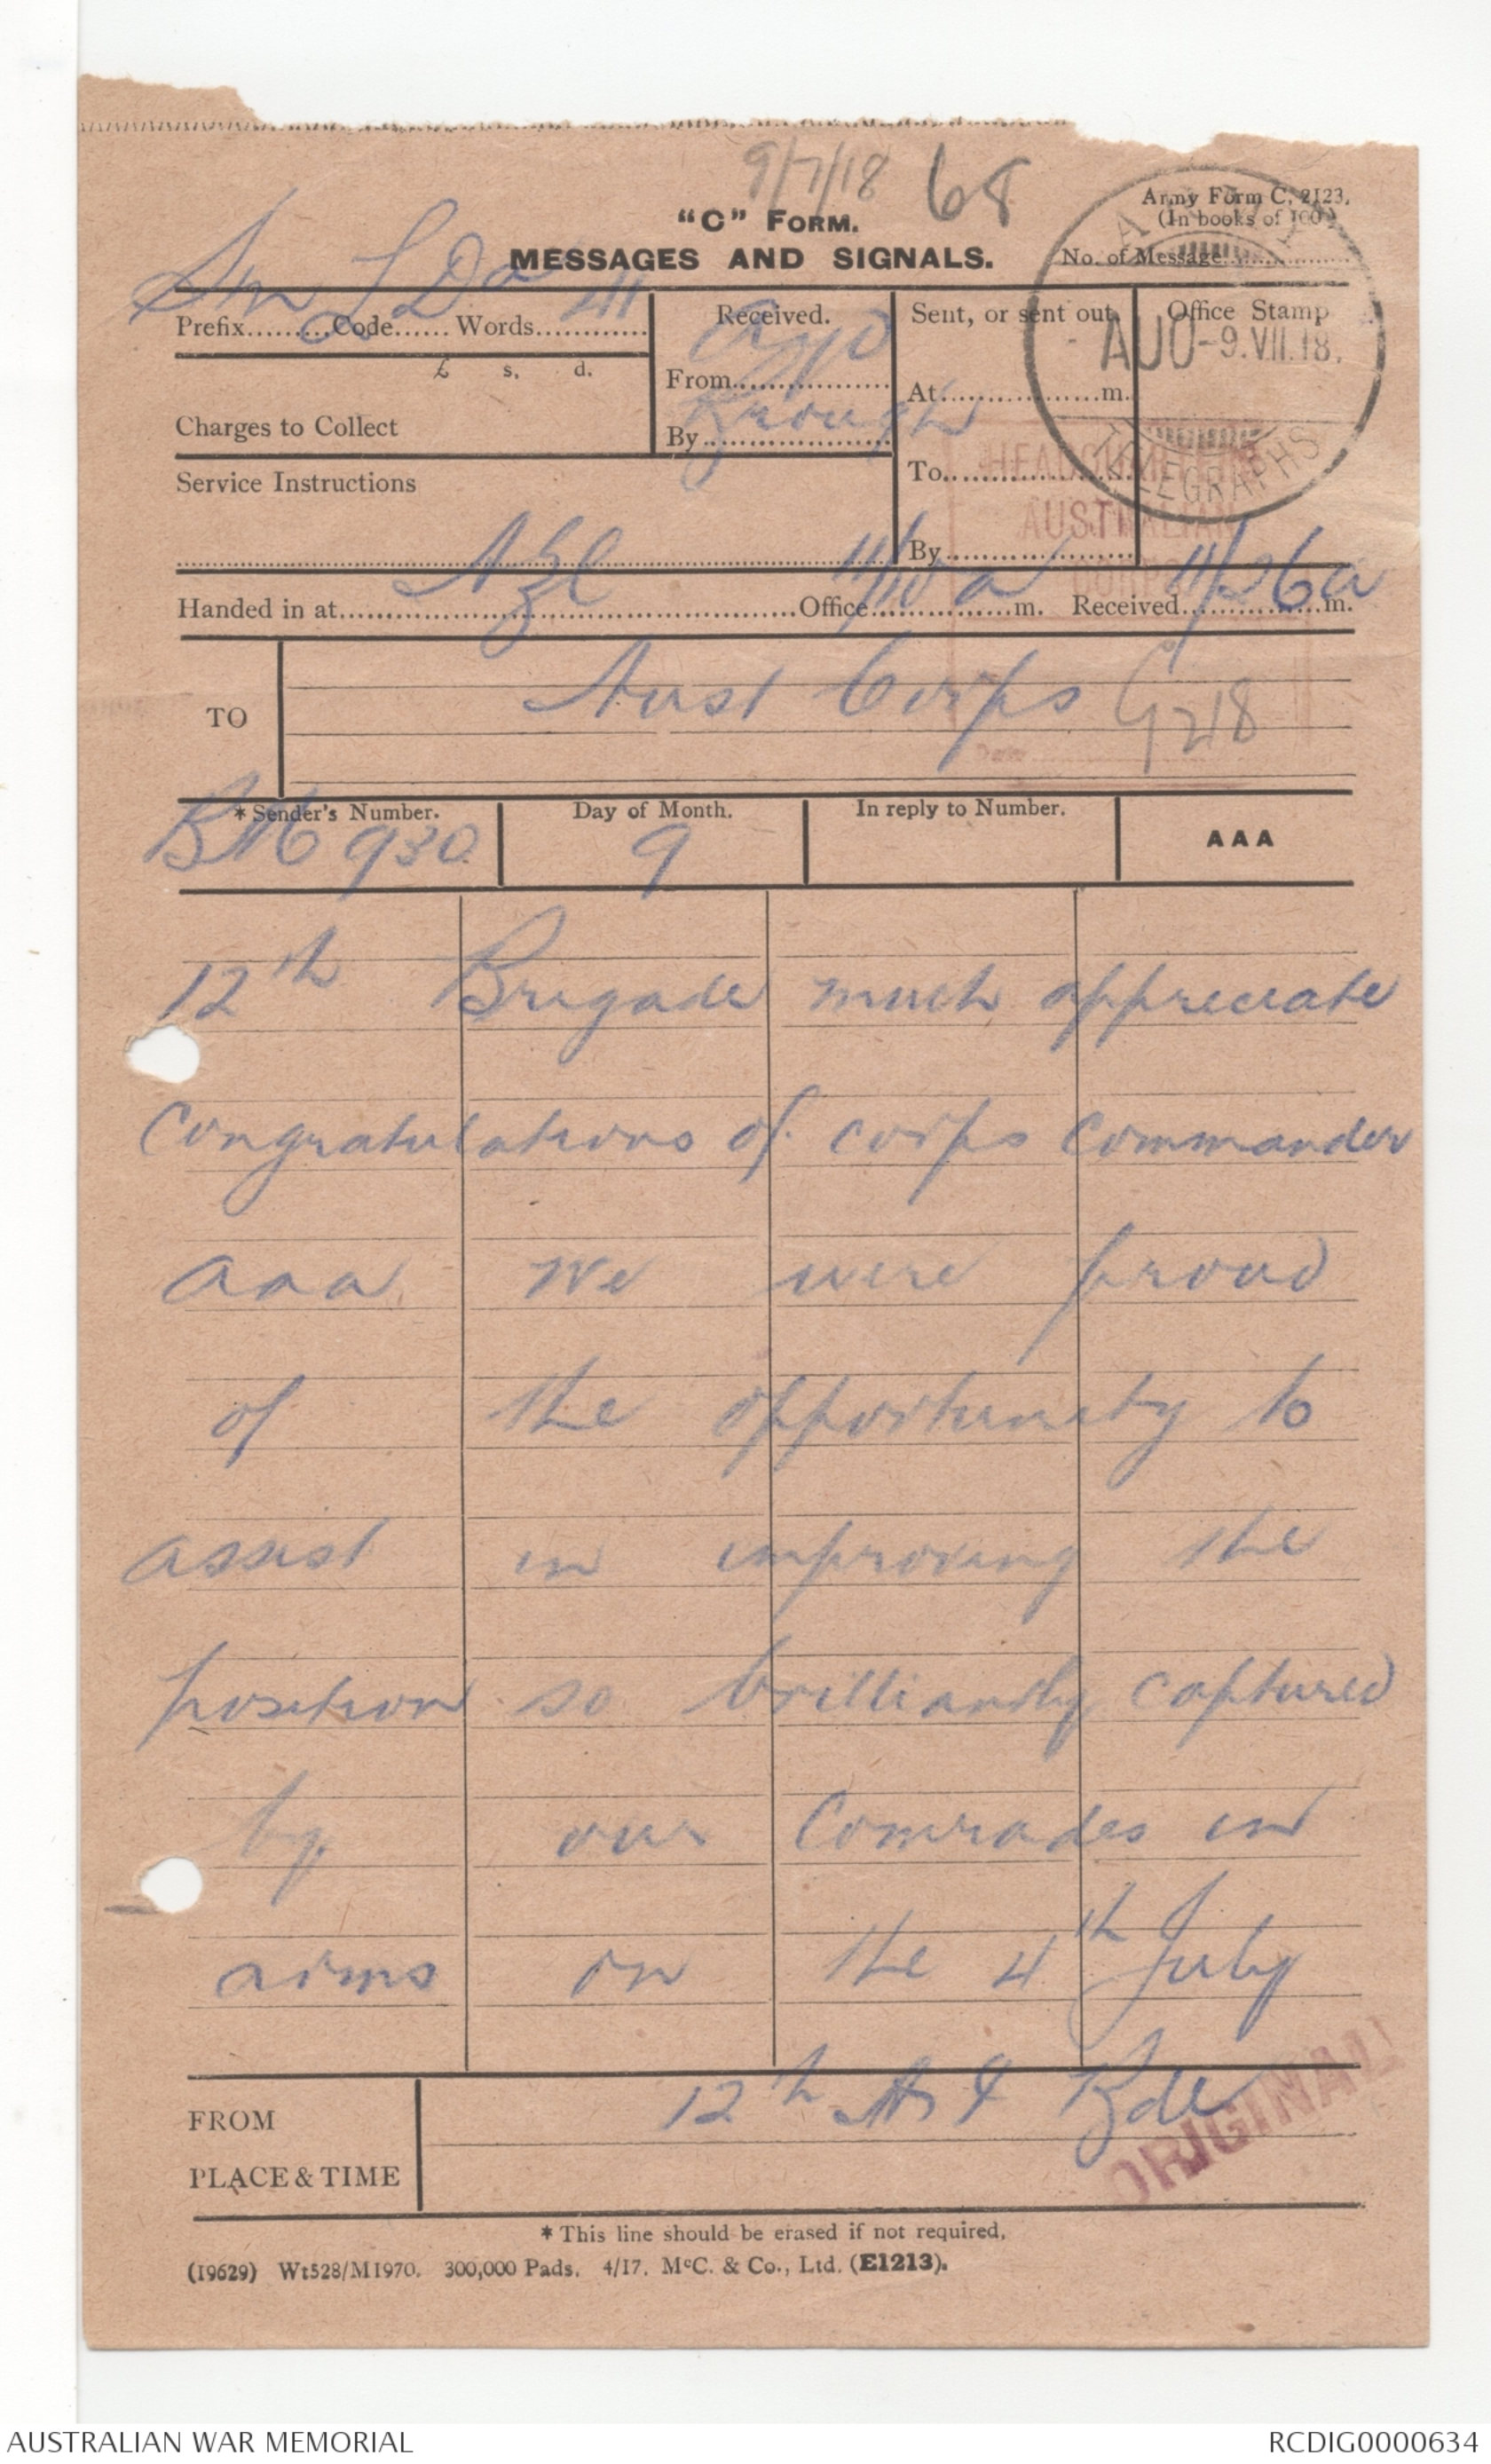 9/7/18 68
Army Form C. 2123.
(In books of 100)
"C" FORM.
MESSAGES AND SIGNALS.
No. of Message
Prefix Sm Code Words 41
Received.
Sent, or sent out
Office Stamp
AUO -9.VII.18.
TELEGRAPHS
£ s. d.
From
At m.
Charges to Collect
By
To
HEADQUARTERS
AUSTRALIAN
CORPS
Service Instructions
By
Handed in at Office 11/10 a m. Received 11/26 a m.
TO
Aust Corps G218
Date
*Sender's Number. Day of Month. In reply to Number. AAA
930 9
12th Brigade much appreciate
Congratulations of corps Commander
aaa We were proud
of the opportunity to
assist in improving the
position so brilliantly captured
by our Comrades in
arms on the 4th July
FROM
12th Bde
PLACE & TIME
ORIGINAL
*This line should be erased if not required.
(19629) Wt528/M1970. 300,000 Pads. 4/17. McC. & Co., Ltd. (E1213).
AUSTRALIAN WAR MEMORIAL RCDIG0000634